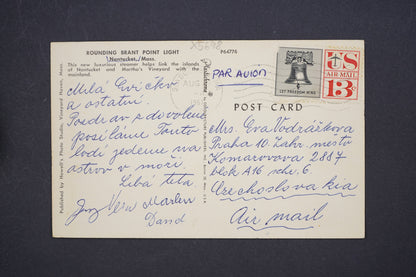 X5698
ROUNDING BRANT POINT LIGHT
Nantucket, Mass.
P64776
This new luxurious steamer helps link the islands
of Nantucket and Martha's Vineyard with the
mainland.
Milá Evičko
a ostatní.
Pozdrav s dovolené
posíláme. Touto
lodí jedeme na
ostrov v moři.
Líbá teta
Vera Marlen
David
Published by Howell's Photo Studio, Vineyard Haven, Mass.
Plastichrome
AUG
PAR AVION
LET FREEDOM RING
US
AIR MAIL
13c
POST CARD
Mrs. Eva Vodrážková
Praha 10. Zahr. město
Komarovova 2887
blok A16 sch. 6.
Czechoslovakia
Air mail